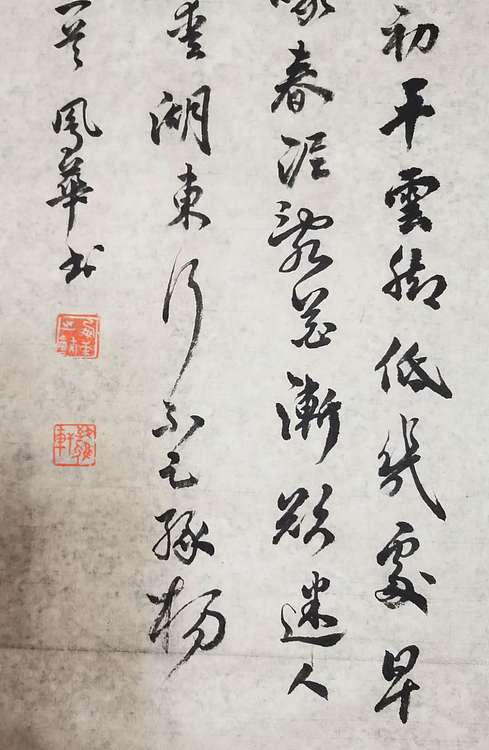 初平雲脚低幾處早
啄春泥亂花漸欲迷人
愛湖東行不足綠楊
鳳華書